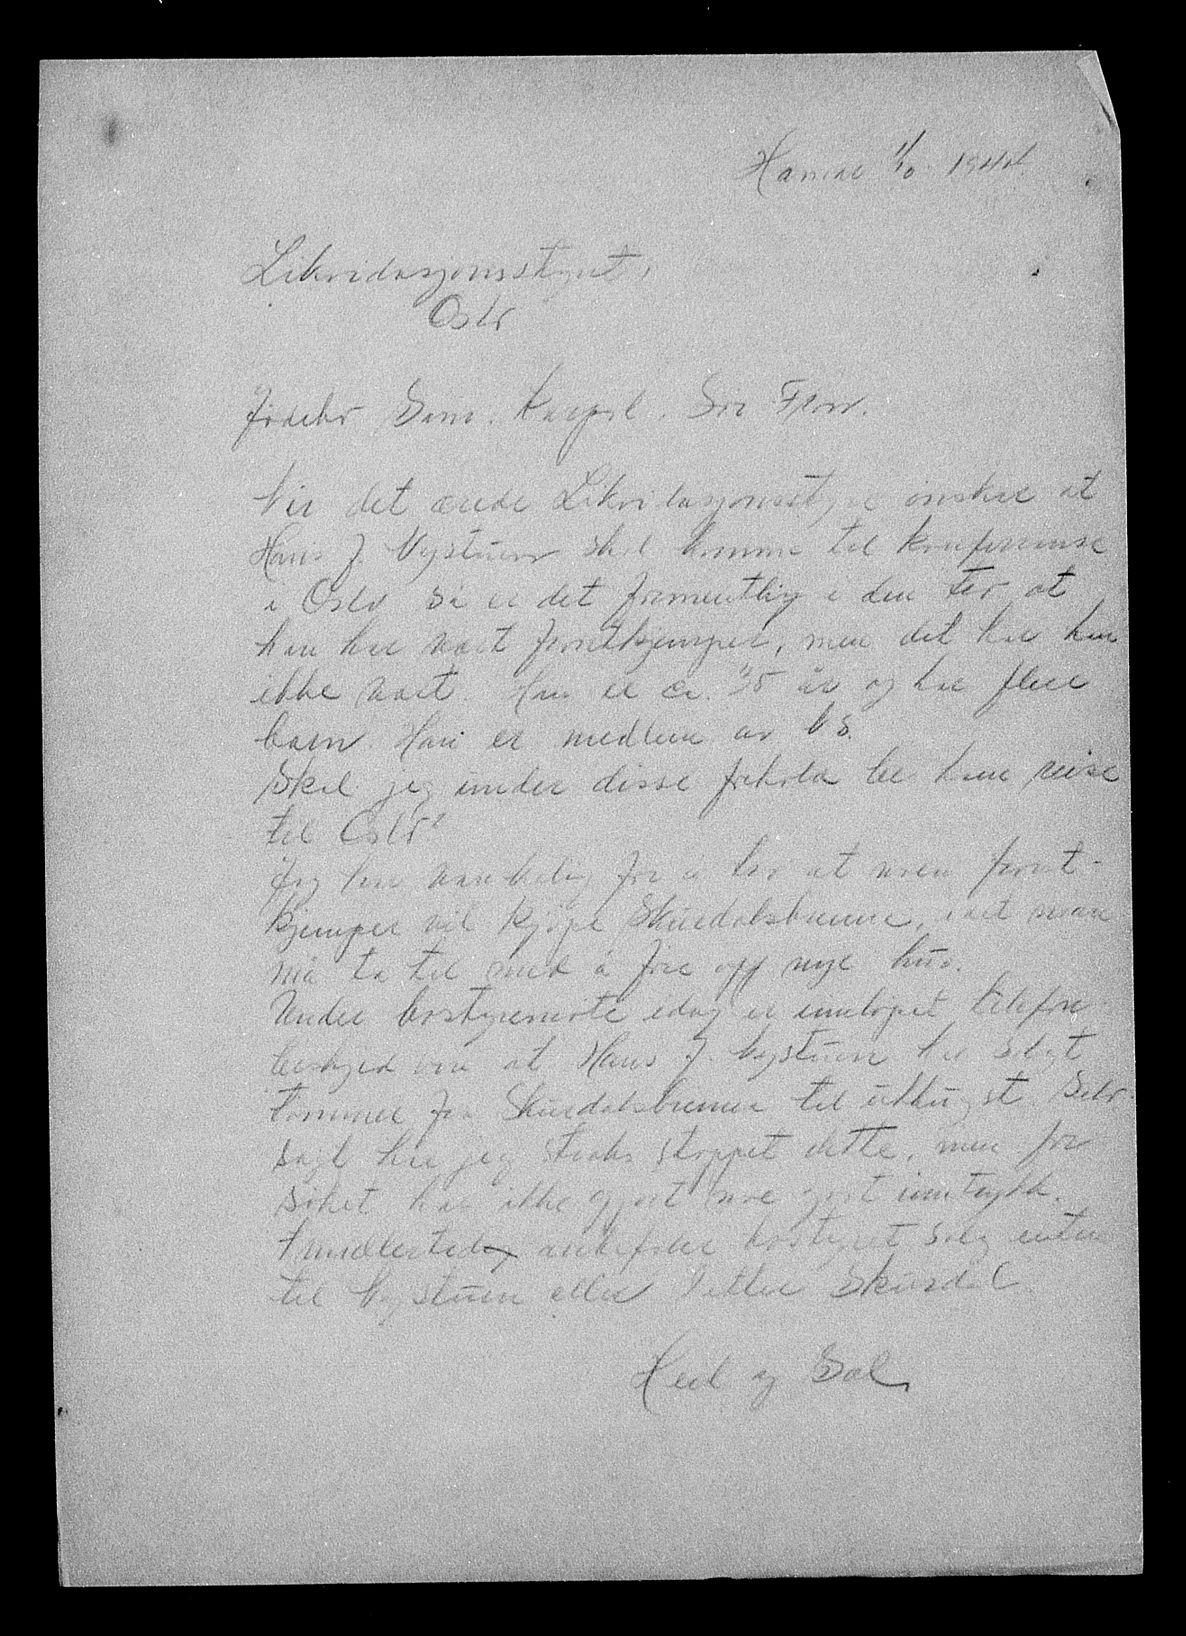 Hamar 1/10 1944
Likvidasjonsstyret,
Oslo
Jødebo Sam. Karpol. Sør Fron.
Når det ærede Likvidasjonsstyre ønsker at
Hans J. Nystuen skal komme til konferanse
i Oslo så er det formentlig i den tro at
han har vært frontkjemper, men det har han
ikke vært. Han er ca. 35 år og har flere
barn. Han er medlem av NS.
Skal jeg under disse forhold be ham reise
til Oslo?
Jeg har vanskelig for å tro at noen front-
kjemper vil kjøpe Skurdalsbruene, idet man
må ta til med å føre opp nye hus.
Under bostyremøte idag er innløpet telefon-
beskjed om at Hans J. Nystuen har solgt
tømmer fra Skurdalsbruene til uthugst. Selv-
sagt har jeg straks stoppet dette, men for
søket har ikke gjort noe godt inntrykk.
anbefaler bostyret salg enten
til Nystuen eller Petter Skurdal
Heil og Sæl